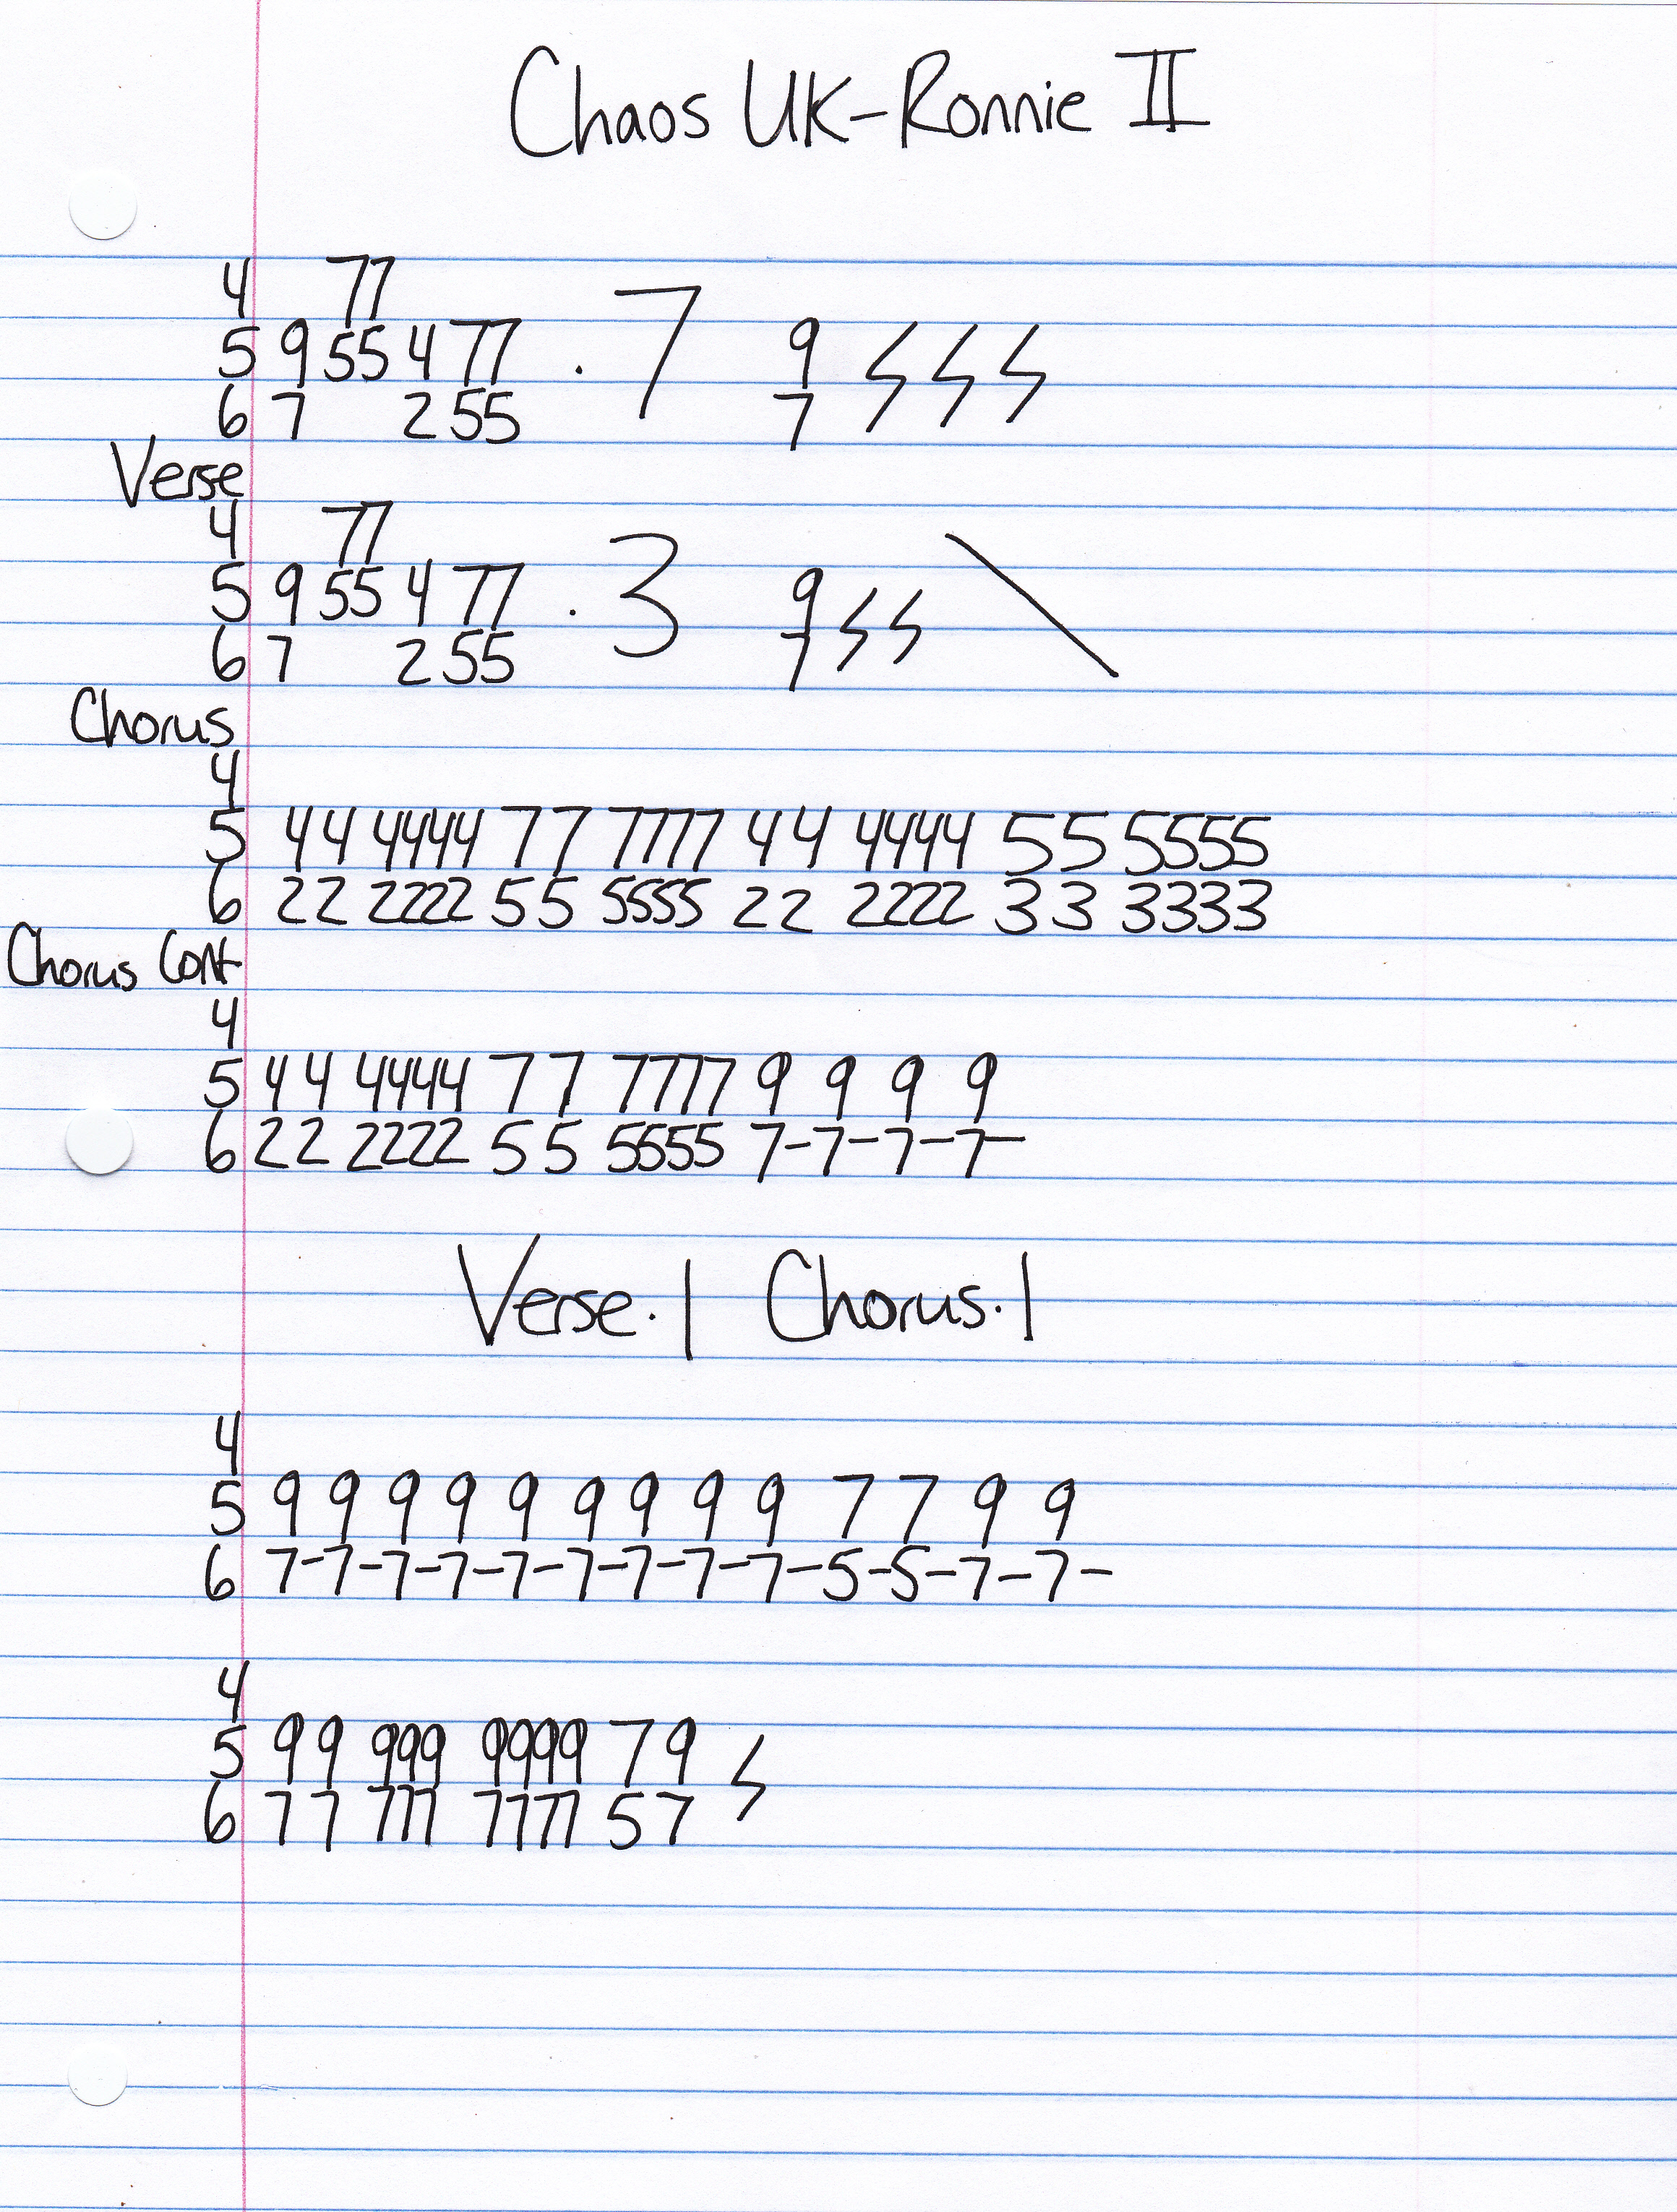 Chaos UK-Ronnie II
4 77
5 9 55 4 77 . 7 9
6 7 2 55 7
Verse
4 77
5 9 55 4 77 . 3 9
6 7 2 55 7
Chorus
4
5 44 4444 77 7777 44 4444 55 5555
6 22 2222 55 5555 22 2222 33 3333
Chorus Cont
4
5 44 4444 77 7777 9 9 9 9
6 22 2222 55 5555 7-7-7-7-
Verse.| Chorus.|
4
5 9 9 9 9 9 9 9 9 9 7 7 9 9
6 7-7-7-7-7-7-7-7-7-5-5-7-7-
4
5 99 999 9999 79
6 77 777 7777 57